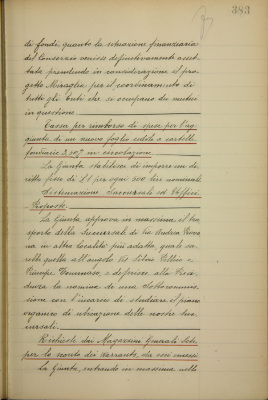 383
di fondi, quanto la situazione finanziaria
del Consorzio venisse definitivamente asset-
tata prendendo in considerazione il pro-
getto Miraglia per il coordinamento di
tutti gli Enti che si occupano di
in questione.
Tassa per rimborso di spese per l'ag-
giunta di un nuovo foglio cedole a cartelle
fondiarie 3.50% in circolazione.
La Giunta stabilisce di imporre un di-
ritto fisso di £1 per ogni 500 lire nominali.
Sistemazione Succursali ed Uffici.
Proposte.
La Giunta approva in massima, il tra-
sporto della Succursale di Via Andrea Doria
na in altra località più adatta, quale sa-
rebbe quella all'angolo Via Silvio Pellico e
Principe Tommaso, e deferisce alla Presi-
denza la nomina di una Sottocommis-
sione con l'incarico di studiare il piano
organico di ubicazione delle nostre Suc-
cursali.
Richiesta dai Magazzini Generali
per lo sconto dei warrants, da essi emessi.
La Giunta, entrando in massima nelle